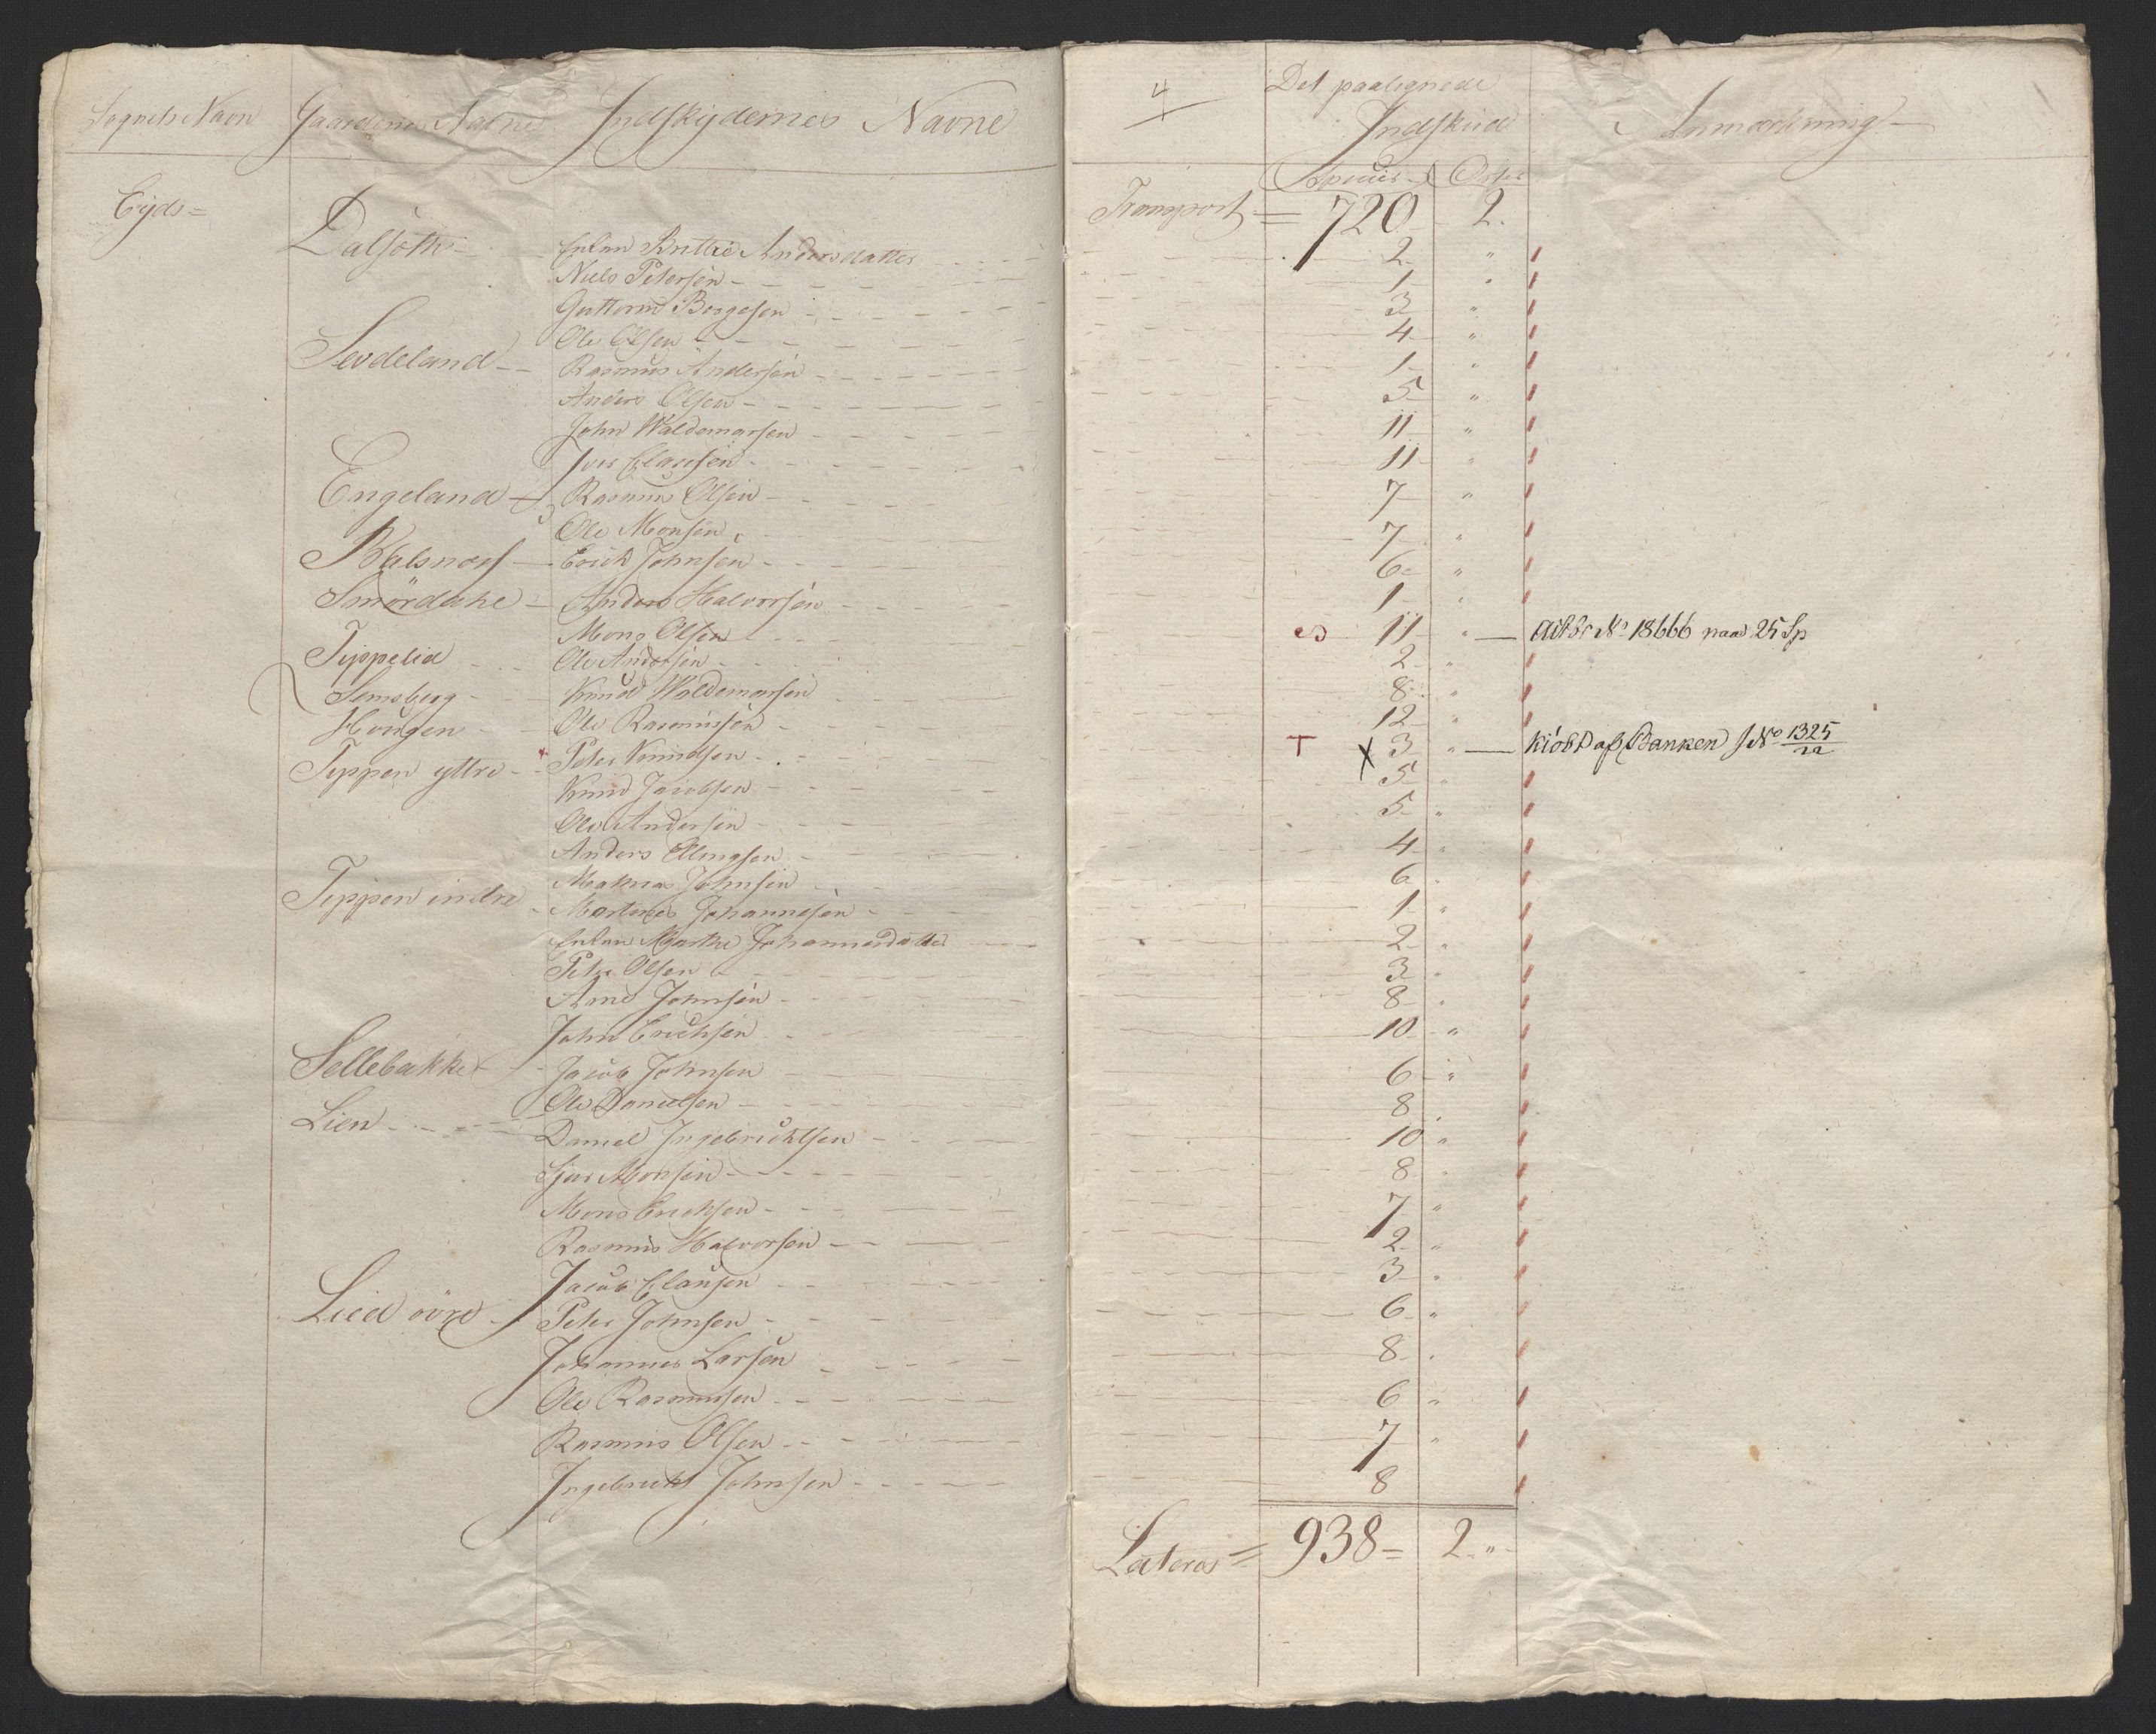 Sognets Navn Gaardenes Navne Indskydernes Navne
4 Det paalignede Indskud Anmærkning
Species Orter
Eyds=
Transport = 720 2.
Dalsøth - Enken Brithe Andersdatter 2 "
Niels Petersen 1 "
Guttorm Borgesen 3 "
Ole Olsen 4 "
Sevdeland - Rasmus Andersen 1 "
Anders Olsen 5 "
John Waldemarsen 11 "
Iver Clausen 11 "
Engeland - Rasmus Olsen 7 "
Ole Monsen 7 "
Balsnæs - Erich Johnsen 6 "
Smørdahl - Anders Halvorsen 1 "
Mons Olsen 11 " No 18666 paa 25 Sp
Tippelid Ole Andersen 2 "
Semsberg - Knud Waldemarsen 8 "
Hougen - Ole Rasmussen 12 "
Teppen yttre - Peter Knudsen T X 3 " kiöbt af Banken J No 1325/22
Knud Jacobsen 5 "
Ole Andersen 5 "
Anders Ellingsen 4 "
Teppen indre Johnsen 6 "
Martines Johannesen 1 "
Enken Marthe Johannesdatter 2 "
Peter Olsen 3 "
Arne Johnsen 8 "
John Erichsen 10 "
Sellebakke Jacob Johnsen 6 "
Lien - Ole Danielsen 8 "
Daniel Ingebrichtsen 10 "
Monsen 8 "
Mons Erichsen 7 "
Rasmus Halvorsen 2 "
Jacob Clausen 3 "
Lied övre - Peter Johnsen 6 "
Johannes Larsen 8 "
Ole Rasmussen 6 "
Rasmus Olsen 7 "
Ingebricht Johnsen 8
Lateres = 938 = 2 "